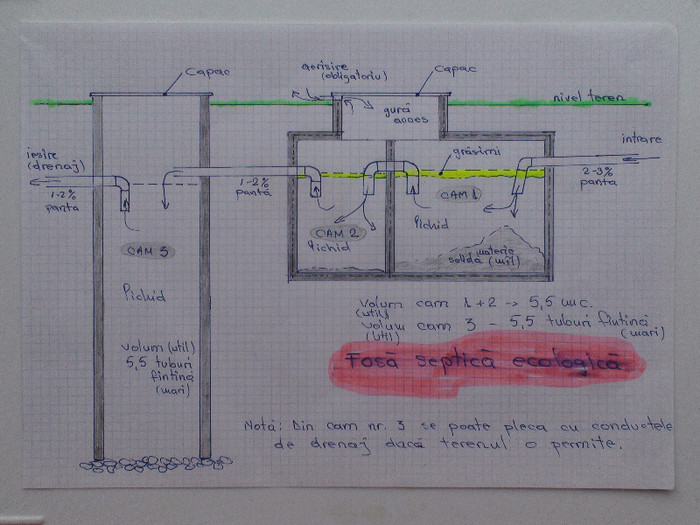 capac
aerisire
(obligatoriu)
capac
gură
acces
nivel teren
iesire
(drenaj)
1-2%
panta
1-2%
pantă
grăsimi
intrare
2-3%
panta
CAM 1
CAM 2
lichid
lichid
materie
solidă (mîl)
CAM 3
lichid
volum (util)
5,5 tuburi
fîntînă
(mari)
volum cam 1+2 -> 5,5 mc.
(util)
volum cam 3 - 5,5 tuburi fîntînă
(util)
(mari)
Fosă septică ecologică
Notă: Din cam nr. 3 se poate pleca cu conductele
de drenaj dacă terenul o permite.